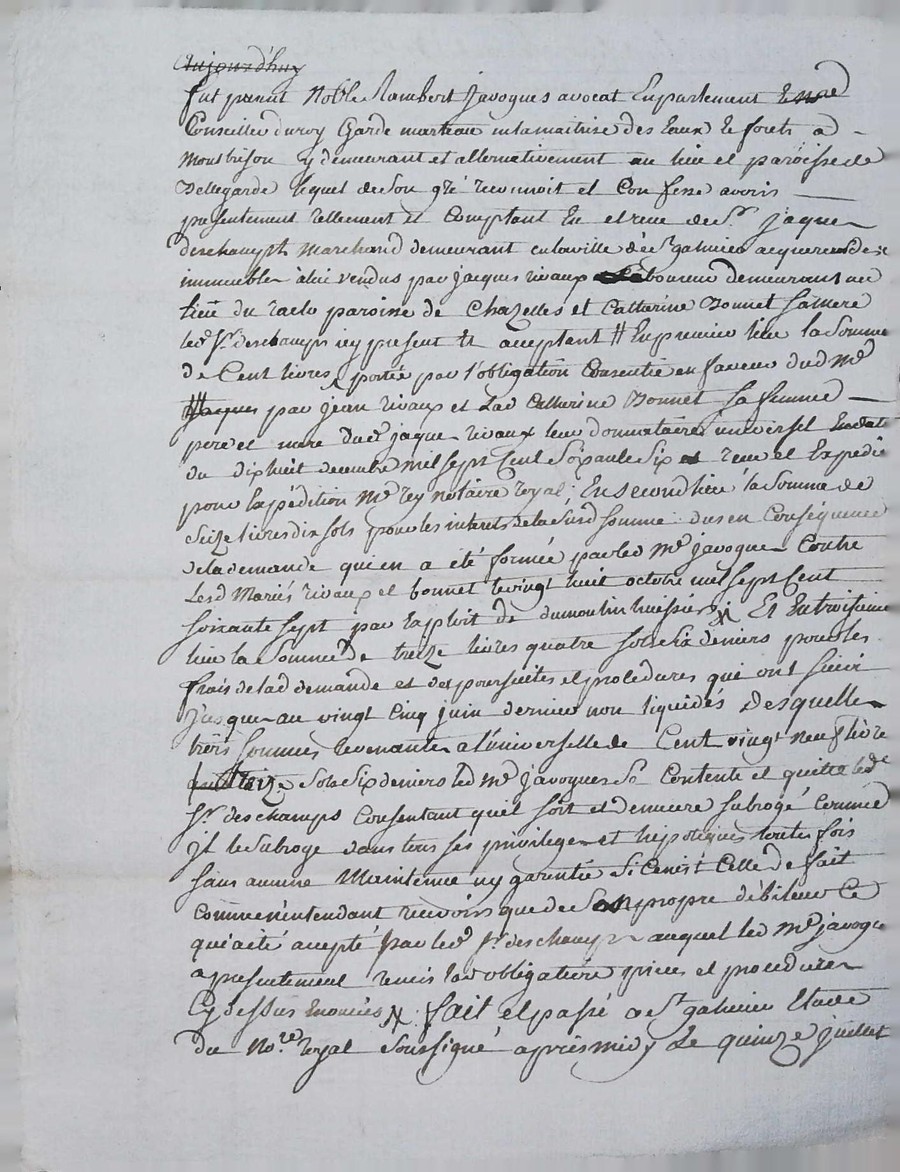 Aujourd'huy
fut présent Noble Rambert Javogues avocat En parlement Et
Conseiller du roy Garde marteau en la maitrise des Eaux et forets de
Montbrison y demeurant et alternativement au lieu et paroisse de
Bellegarde lequel de son gré reconnoit et Confesse avoir
presentement réellement et Comptant Eu et receu de Sr. jaques
deschamps Marchand demeurant en la ville de st galmier acquereur des
immeubles à lui vendus par jacques rivaux laboureur demeurant au
lieu du paroisse de Chazelles et Catherine Bonnet sa mere
led Sr. deschamps icy present et acceptant # En premier lieu la somme
de Cent livres portée par l'obligation Consentie en faveur dud Me
Jaques par jean rivaux et Lad Catherine Bonnet sa femme
pere et mere dud jaques rivaux leur donnataire universel En datte
du dix huit decembre mil sept Cent Soixante Six receue et Expediée
pour Expédition Me rey notaire royal; En second lieu la Somme de
Seize livres dix sols pour les interets de la susd somme dus en Conséquence
de la demande qui en a été formée par led Me javogues Contre
Lesd Mariés rivaux et bonnet le vingt huit octobre mil sept Cent
soixante sept par Exploit de dumoulin huissier Et En troisieme
lieu la Somme de treize livres quatre sols six deniers pour les
frais de lad demande et des poursuites et procedures qui ont suivi
Jusques au vingt Cinq juin dernier non liquidés Desquelles
trois sommes revenantes a l'universelle de Cent vingt neuf livres
quatorze Sols Six deniers led Me javogues Se Contente et quitte led
Sr. deschamps Consentant qu'il soit et demeure subrogé Comme
il le subroge dans tous ses privileges et hipoteques toutes fois
sans aucune Maintenue ny garentie Si Ce n'est Celle de fait
Comme n'entendant recevoir que de Son propre débiteur Ce
qu'a été accepté par led Sr. deschamps auquel led Me javogues
a presentement remis lad obligation pieces et procedures
Cy dessus Enoncées fait et passé a St galmier Etude
du Nore royal Soussigné après midy Le quinze juillet